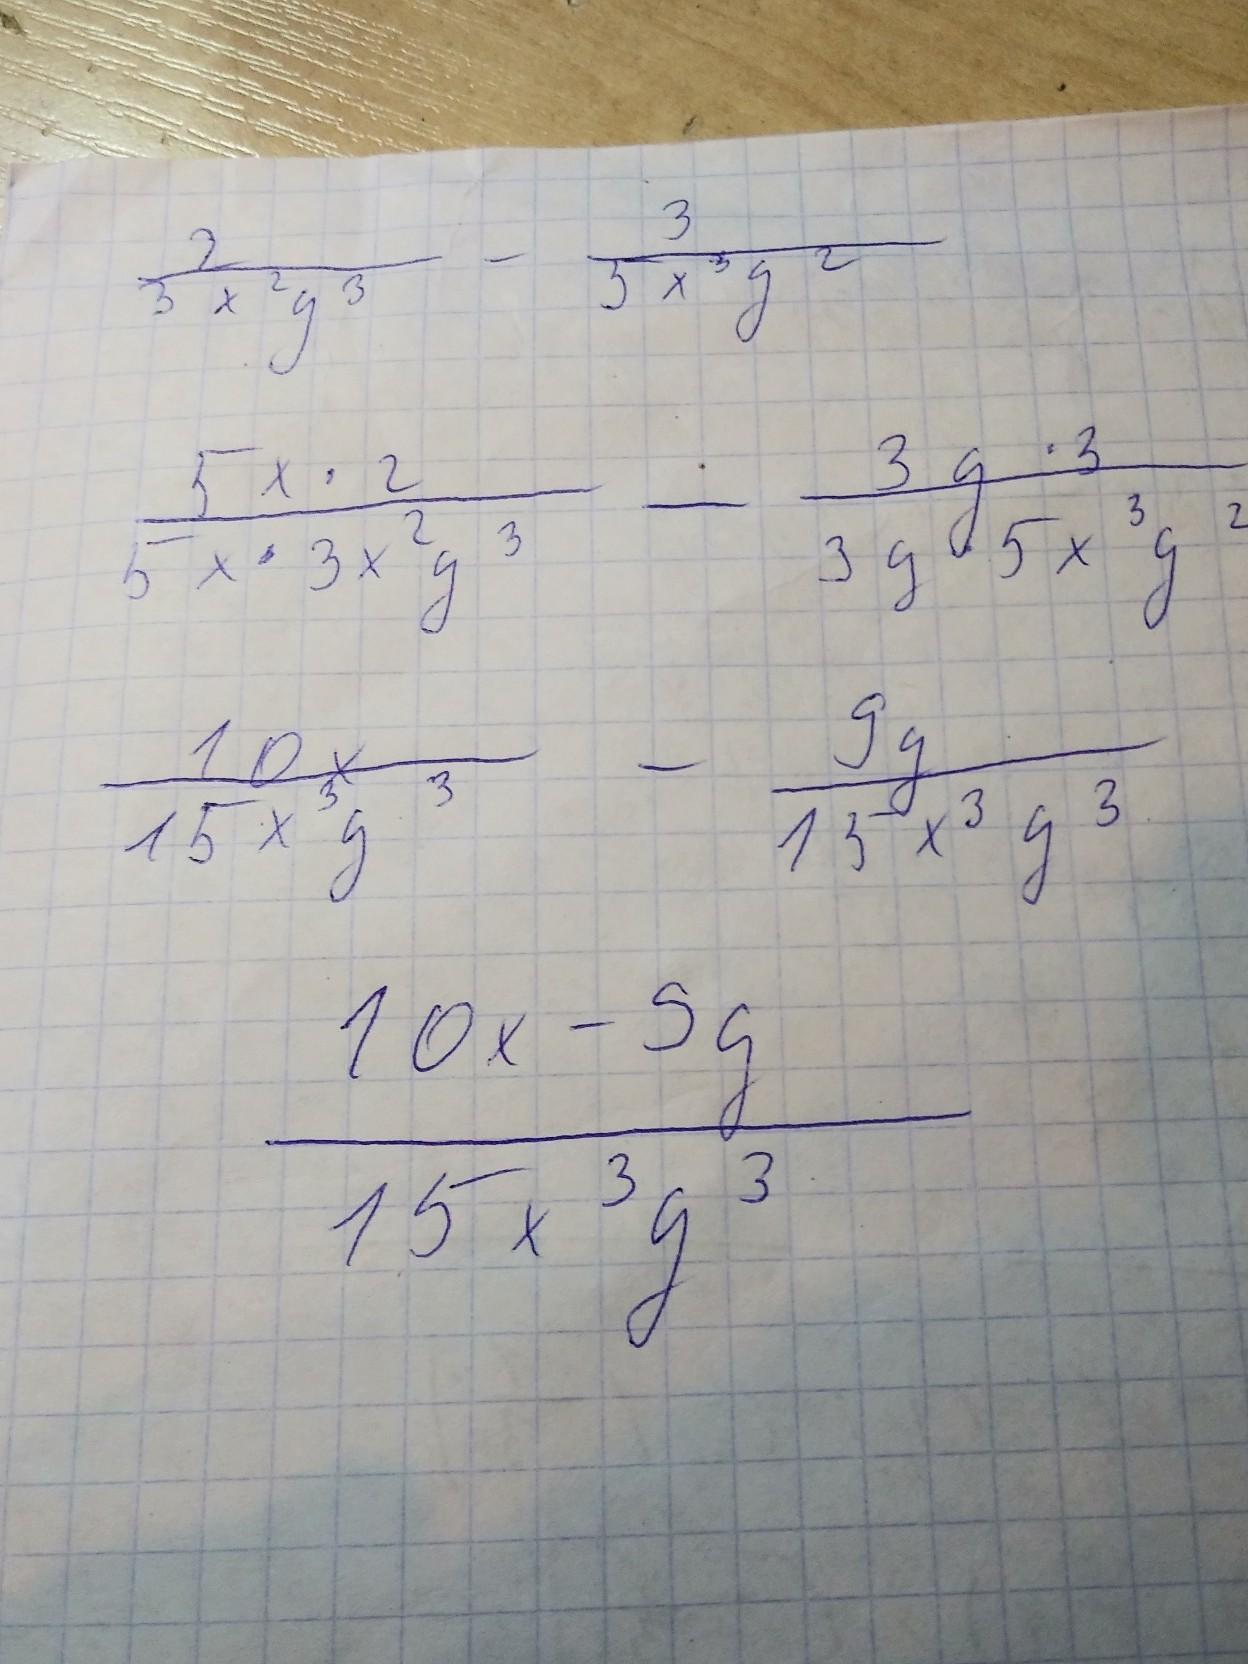 2 / 3x²y³ - 3 / 5x³y²
5x·2 / 5x·3x²y³ - 3y·3 / 3y·5x³y²
10x / 15x³y³ - 9y / 15x³y³
10x-9y / 15x³y³